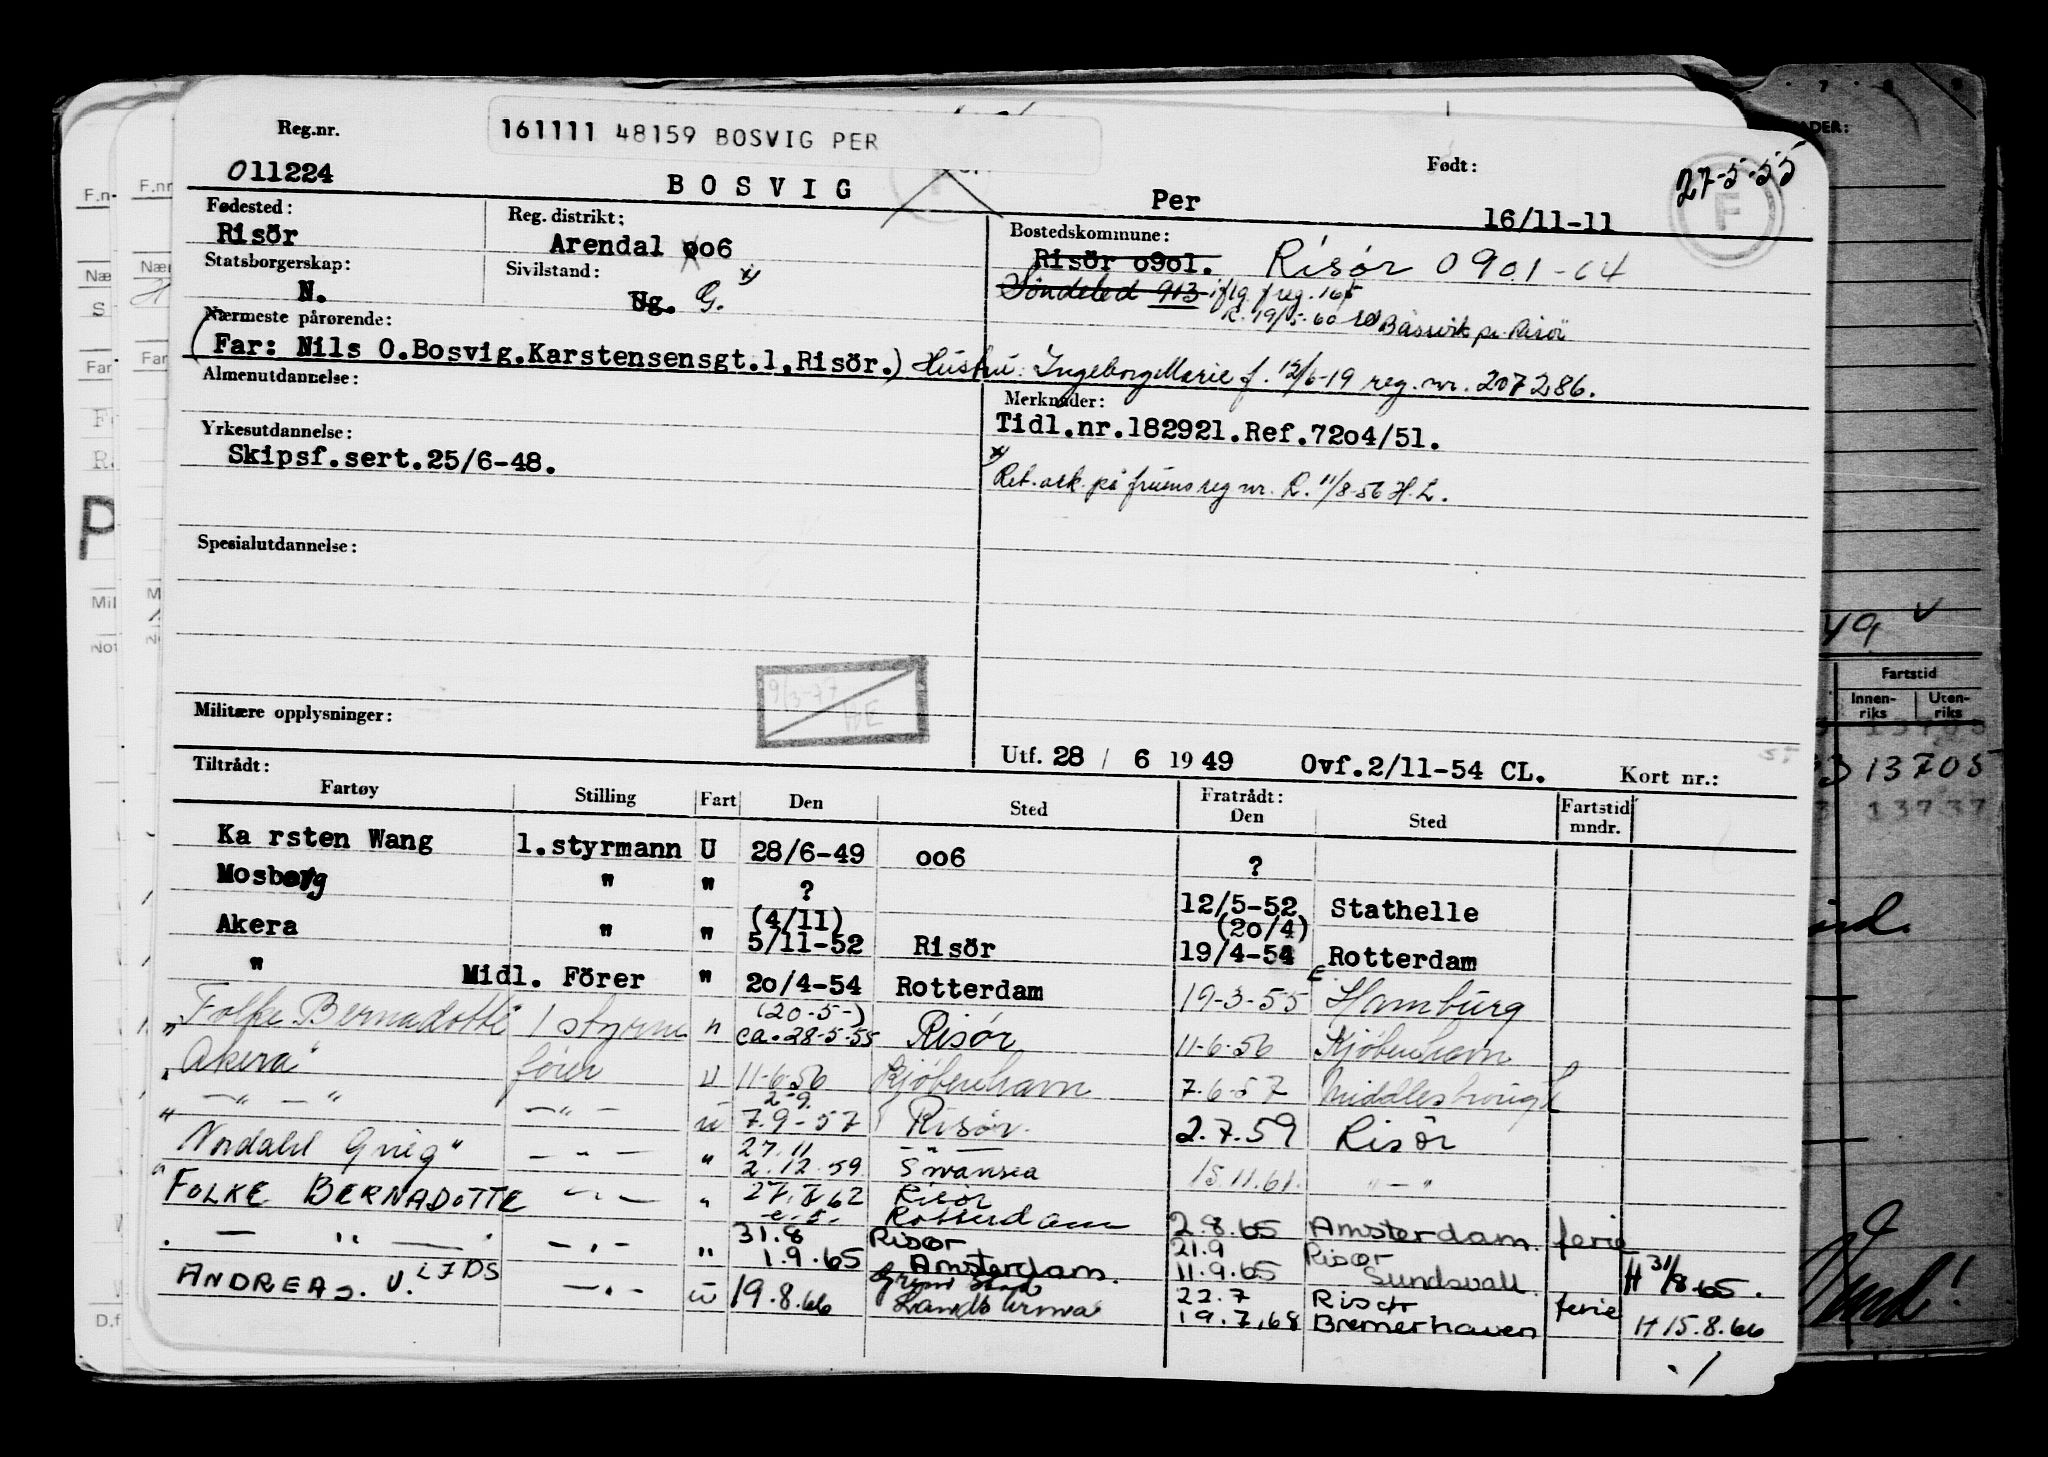 161111 48159 BOSVIG PER
Reg.nr.
011224
BOSVIG
Per
Født:
16/11-11
27-5-55
F
Fødested:
Risör
Reg. distrikt:
Arendal 006
Bostedskommune:
Risör 0901. Risør 0901-64
Statsborgerskap:
N.
Sivilstand:
Ug. G. x)
Söndeled 913 iflg. freg. 16/5
R. 19/5-60 Bassvik pr. Risör
Nærmeste pårørende:
(Far: Nils O.Bosvig.Karstensensgt.1,Risör.) Hustru: Ingeborg Marie f. 12/6-19 reg. nr. 207286.
Almenutdannelse:
Merknader:
Tidl.nr.182921.Ref.7204/51.
Yrkesutdannelse:
Skipsf.sert.25/6-48.
x) Ret. ark. på fruens reg nr. R. 11/8-56 H.L.
Spesialutdannelse:
9/3-77
Militære opplysninger:
Utf. 28 / 6 1949 Ovf.2/11-54 CL. Kort nr.:
Tiltrådt:
Fartøy Stilling Fart Den Sted Fratrådt: Den Sted Fartstid mndr.
Ka rsten Wang 1.styrmann U 28/6-49 006 ?
Mosberg " " ? 12/5-52 Stathelle
Akera " " (4/11) 5/11-52 Risör (20/4) 19/4-54 Rotterdam
" Midl. Förer " 20/4-54 Rotterdam 19-3-55 Hamburg
"Folke Bernadotte 1 styrm " (20-5-) ca.28-5-55 Risør 11-6-56 Kjøbenhavn
"Akera" fører u 11-6-56 Kjøbenhavn 7-6-57 Middlesbrough
" — " — " — " — u 2-9. 7.9-57 Risør. 2.7.59 Risör
"Nordahl Grieg" — " — " 27.11 2.12.59 — " — Swansea 15.11.61. " — "
"FOLKE BERNADOTTE — " — " 27.5.62 Risør Rotterdam 2.8.65 Amsterdam. ferie
— " — — " — " 31.8 1.9.65 Risør Amsterdam. 21.9 11.9.65 Risør Sundsvall H 31/8.65.
ANDREAS. U. — " — u 19.8.66 22.7 19.7.68 Risør Bremerhaven ferie H 15.8.66
./
Fartstid
Innen-riks Uten-riks
13705
13737